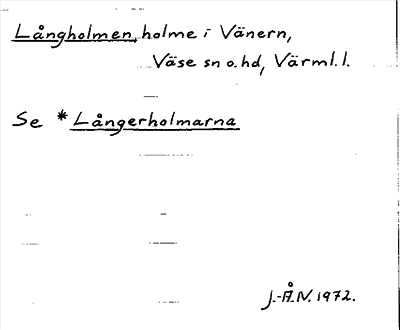 Långholmen, holme i Vänern,
Väse sn o. hd, Värml. l.
Se *Långerholmarna
J.-Å.N. 1972.